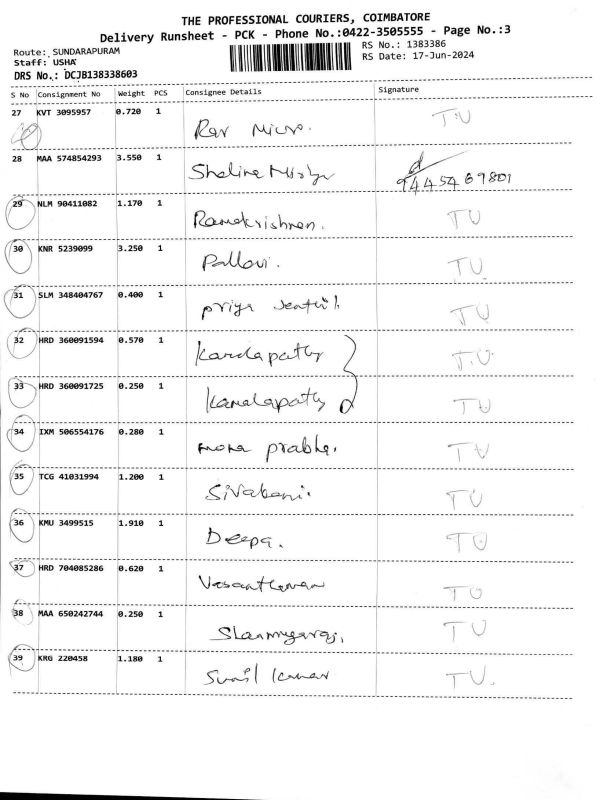 THE PROFESSIONAL COURIERS, COIMBATORE
Delivery Runsheet - PCK - Phone No.:0422-3505555 - Page No.:3
Route: SUNDARAPURAM
RS No.: 1383386
Staff: USHA
RS Date: 17-Jun-2024
DRS No.: DCJB138338603
S No Consignment No Weight PCS Consignee Details Signature
27 KVT 3095957 0.720 1 Micro. T.U
28 MAA 574854293 3.550 1 9445469801
29 NLM 90411082 1.170 1 Ramakrishnan. TU
30 KNR 5239099 3.250 1 Pallavi. TU
31 SLM 348404767 0.400 1 Priya TU
32 HRD 360091594 0.570 1 T.U
33 HRD 360091725 0.250 1 TU
34 IXM 506554176 0.280 1 TU
35 TCG 41031994 1.200 1 TU
36 KMU 3499515 1.910 1 Deepa. TU
37 HRD 704085286 0.620 1 TU
38 MAA 650242744 0.250 1 TU
39 KRG 220458 1.180 1 Sunil Kumar TU.